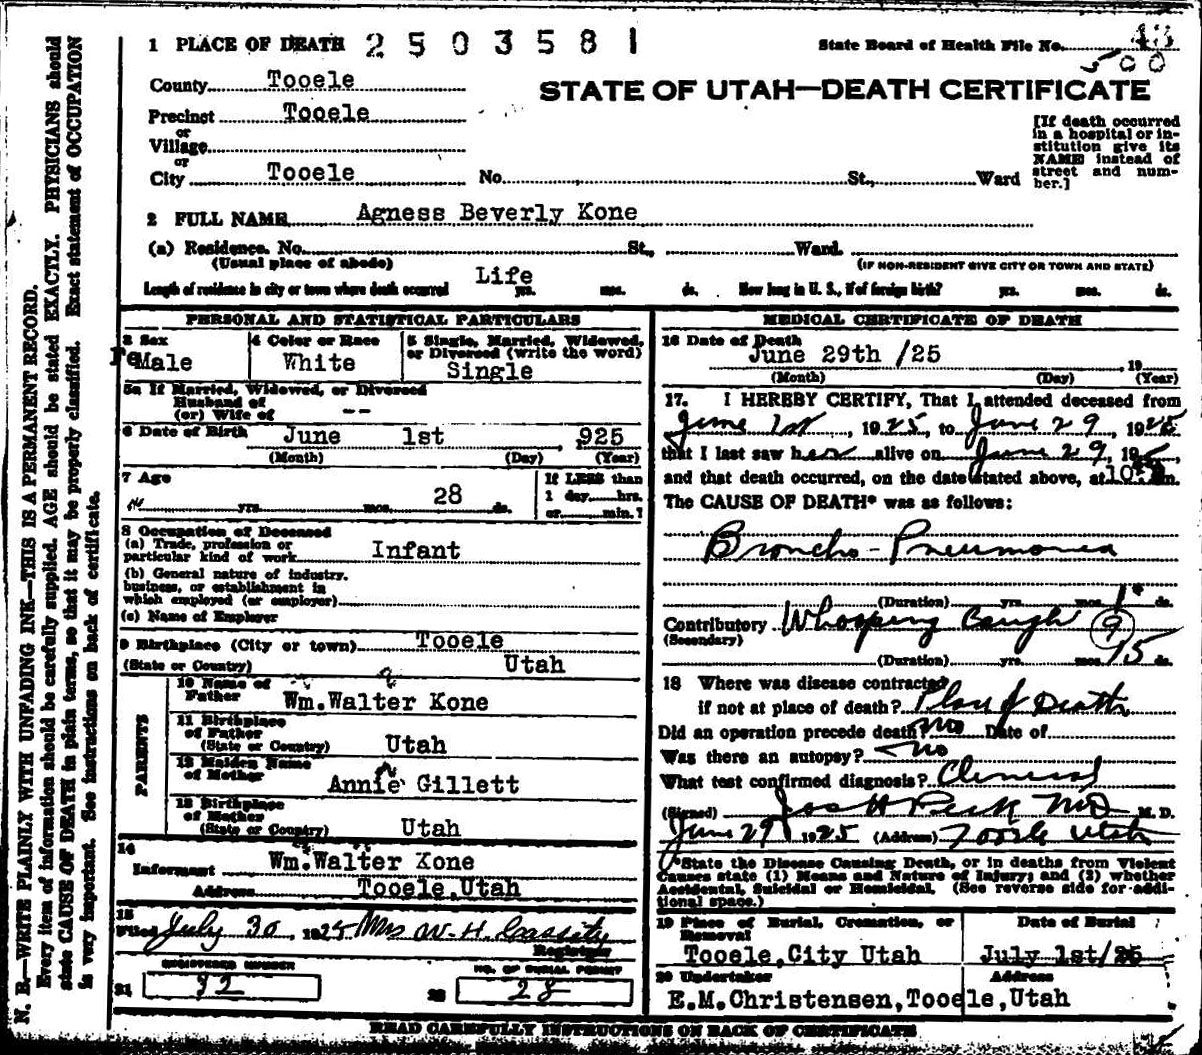 1 PLACE OF DEATH 2503581
State Board of Health File No. 43
500
County Tooele
STATE OF UTAH—DEATH CERTIFICATE
Precinct Tooele
or
Village
or
City Tooele No. St., Ward
[If death occurred
in a hospital or in-
stitution give its
NAME instead of
street and num-
ber.]
2 FULL NAME Agness Beverly Kone
(a) Residence. No. St., Ward.
(Usual place of abode) (IF NON-RESIDENT GIVE CITY OR TOWN AND STATE)
Length of residence in city or town where death occurred Life yrs. mos. ds. How long in U. S., if of foreign birth? yrs. mos. ds.
PERSONAL AND STATISTICAL PARTICULARS
3 Sex
FeMale
4 Color or Race
White
5 Single, Married, Widowed,
or Divorced (write the word)
Single
5a If Married, Widowed, or Divorced
Husband of
(or) Wife of --
6 Date of Birth June 1st ,925
(Month) (Day) (Year)
7 Age
yrs. mos. 28 ds.
If LESS than
1 day, hrs.
or min.?
8 Occupation of Deceased
(a) Trade, profession or
particular kind of work Infant
(b) General nature of industry,
business, or establishment in
which employed (or employer)
(c) Name of Employer
9 Birthplace (City or town) Tooele
(State or Country) Utah
PARENTS
10 Name of
Father Wm.Walter Kone
11 Birthplace
of Father
(State or Country) Utah
12 Maiden Name
of Mother Annie Gillett
13 Birthplace
of Mother
(State or Country) Utah
14
Informant Wm.Walter Kone
Address Tooele,Utah
15
Filed July 30, 1925 Mrs W. H. Cassity
Registrar
REGISTERED NUMBER
21 92
NO. OF BURIAL PERMIT
22 28
MEDICAL CERTIFICATE OF DEATH
16 Date of Death
June 29th /25 , 19
(Month) (Day) (Year)
17. I HEREBY CERTIFY, That I attended deceased from
June 1st, 1925, to June 29, 1925
that I last saw her alive on June 29, 19
and that death occurred, on the date stated above, at 10 m.
The CAUSE OF DEATH* was as follows:
Broncho-Pneumonia
(Duration) yrs. mos. ds.
Contributory Whooping Cough 9
(Secondary)
(Duration) yrs. mos. 15 ds.
18 Where was disease contracted
if not at place of death? Place of Death
Did an operation precede death? No Date of
Was there an autopsy? No
What test confirmed diagnosis? Clinical
(Signed) Jos H Peck MD M. D.
June 29 1925 (Address) Tooele Utah
*State the Disease Causing Death, or in deaths from Violent
Causes state (1) Means and Nature of Injury; and (2) whether
Accidental, Suicidal or Homicidal. (See reverse side for addi-
tional space.)
19 Place of Burial, Cremation, or
Removal
Tooele,City Utah
Date of Burial
July 1st/25
20 Undertaker Address
E.M.Christensen,Tooele,Utah
READ CAREFULLY INSTRUCTIONS ON BACK OF CERTIFICATE
N. B.—WRITE PLAINLY WITH UNFADING INK—THIS IS A PERMANENT RECORD.
Every item of information should be carefully supplied. AGE should be stated EXACTLY. PHYSICIANS should
state CAUSE OF DEATH in plain terms, so that it may be properly classified. Exact statement of OCCUPATION
is very important. See instructions on back of certificate.